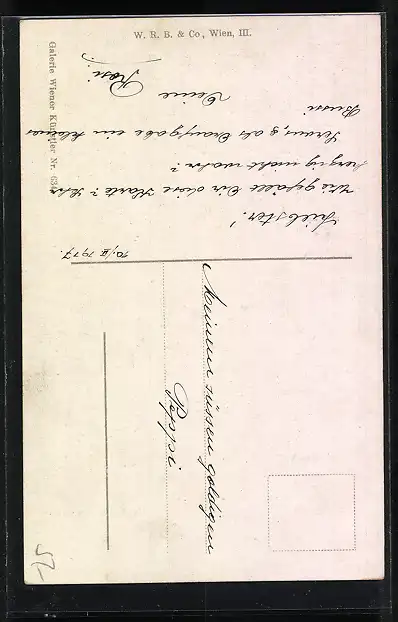 W. R. B. & Co., Wien, III.
Galerie Wiener Künstler Nr. 63
10./II 1917.
Liebster!
Wie gefällt Dir diese Karte? Sehr
herzig nicht wahr?
Servus, als Draufgabe ein kleines
Bussi
Deine
Rosi
Meinem süssen goldigen
Peppi